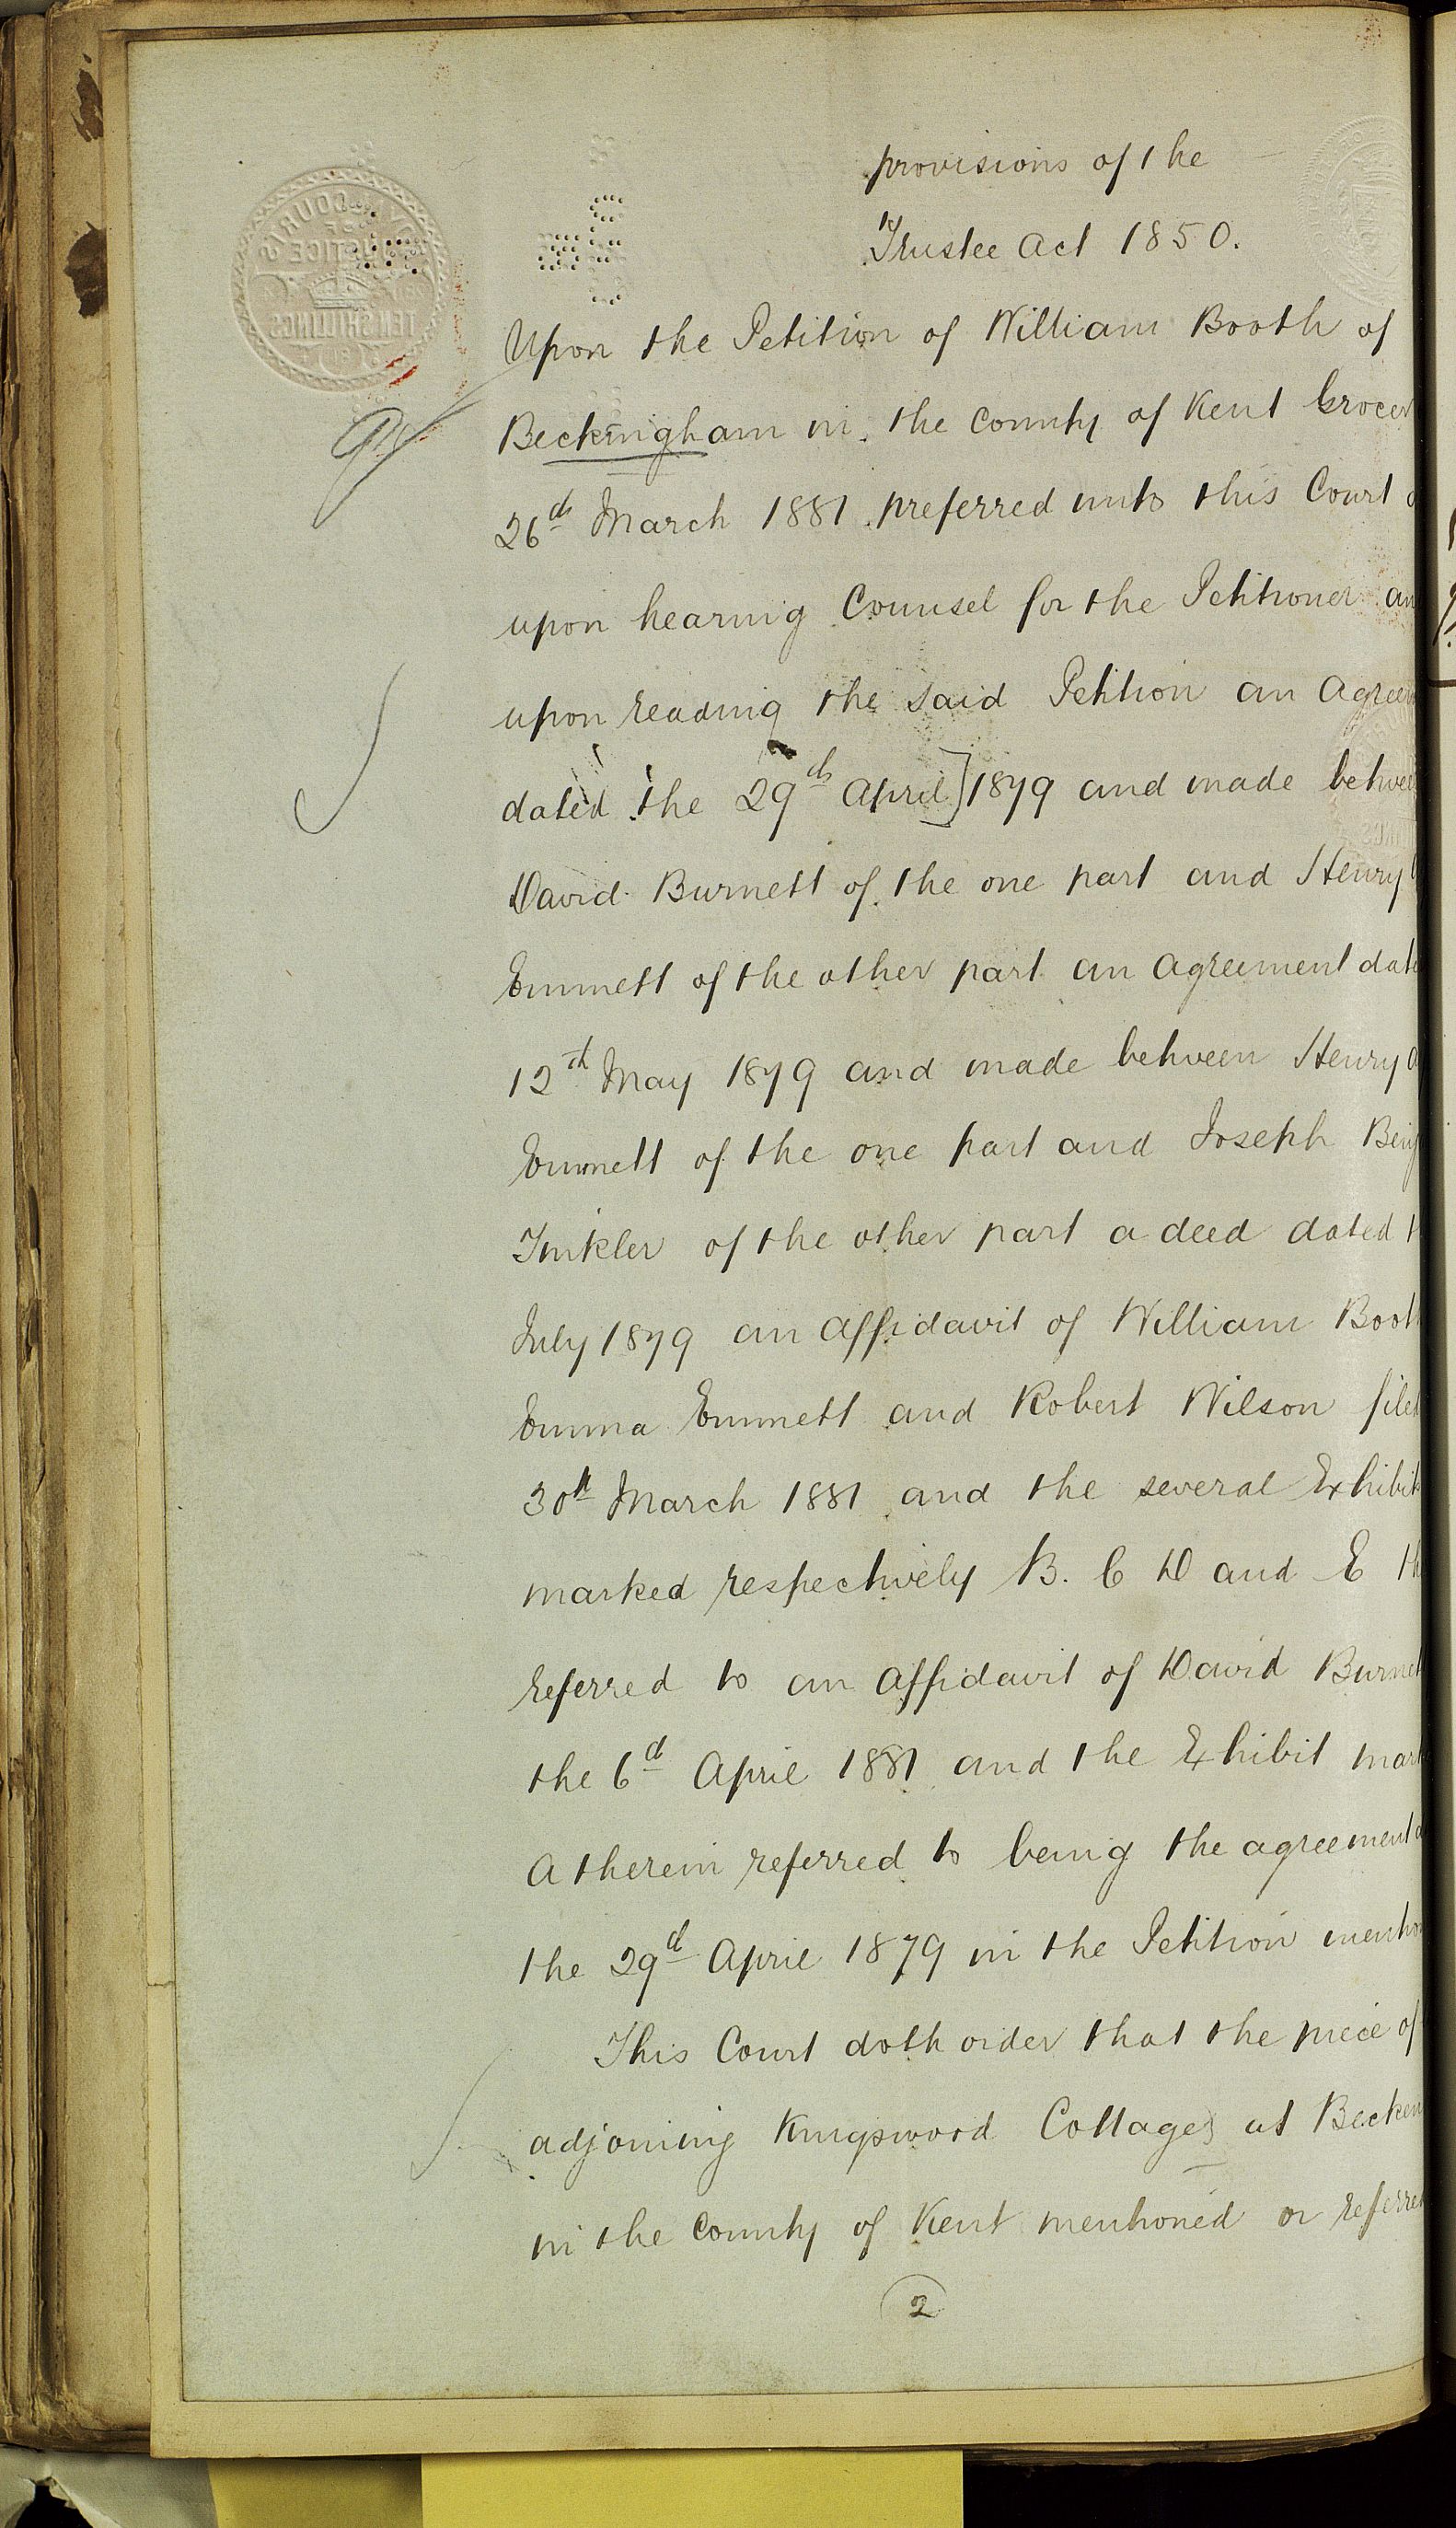 provisions of the
Trustee Act 1850.
COURTS
OF
JUSTICE
TEN SHILLINGS
Upon the Petition of William Booth of
Beckingham in the County of Kent Grocer
26th March 1881 preferred unto this Court
upon hearing Counsel for the Petitioner an
upon reading the said Petition an Agreem
dated the 29th April] 1879 and made betwee
David Burnett of the one part and Henry
Emmett of the other part an agreement date
12th May 1879 and made between Henry
Emmett of the one part and Joseph Benj
Tinkler of the other part a deed dated
July 1879 an affidavit of William Booth
Emma Emmett and Robert Wilson filed
30th March 1881 and the several Exhibits
marked respectively B. C D and E th
referred to an affidavit of David Burnet
the 6th April 1881 and the Exhibit mark
A therein referred to being the agreement
the 29th April 1879 in the Petition mentio
This Court doth order that the piece of
adjoining Kingswood Cottages at Becken
in the County of Kent mentioned or referred
2